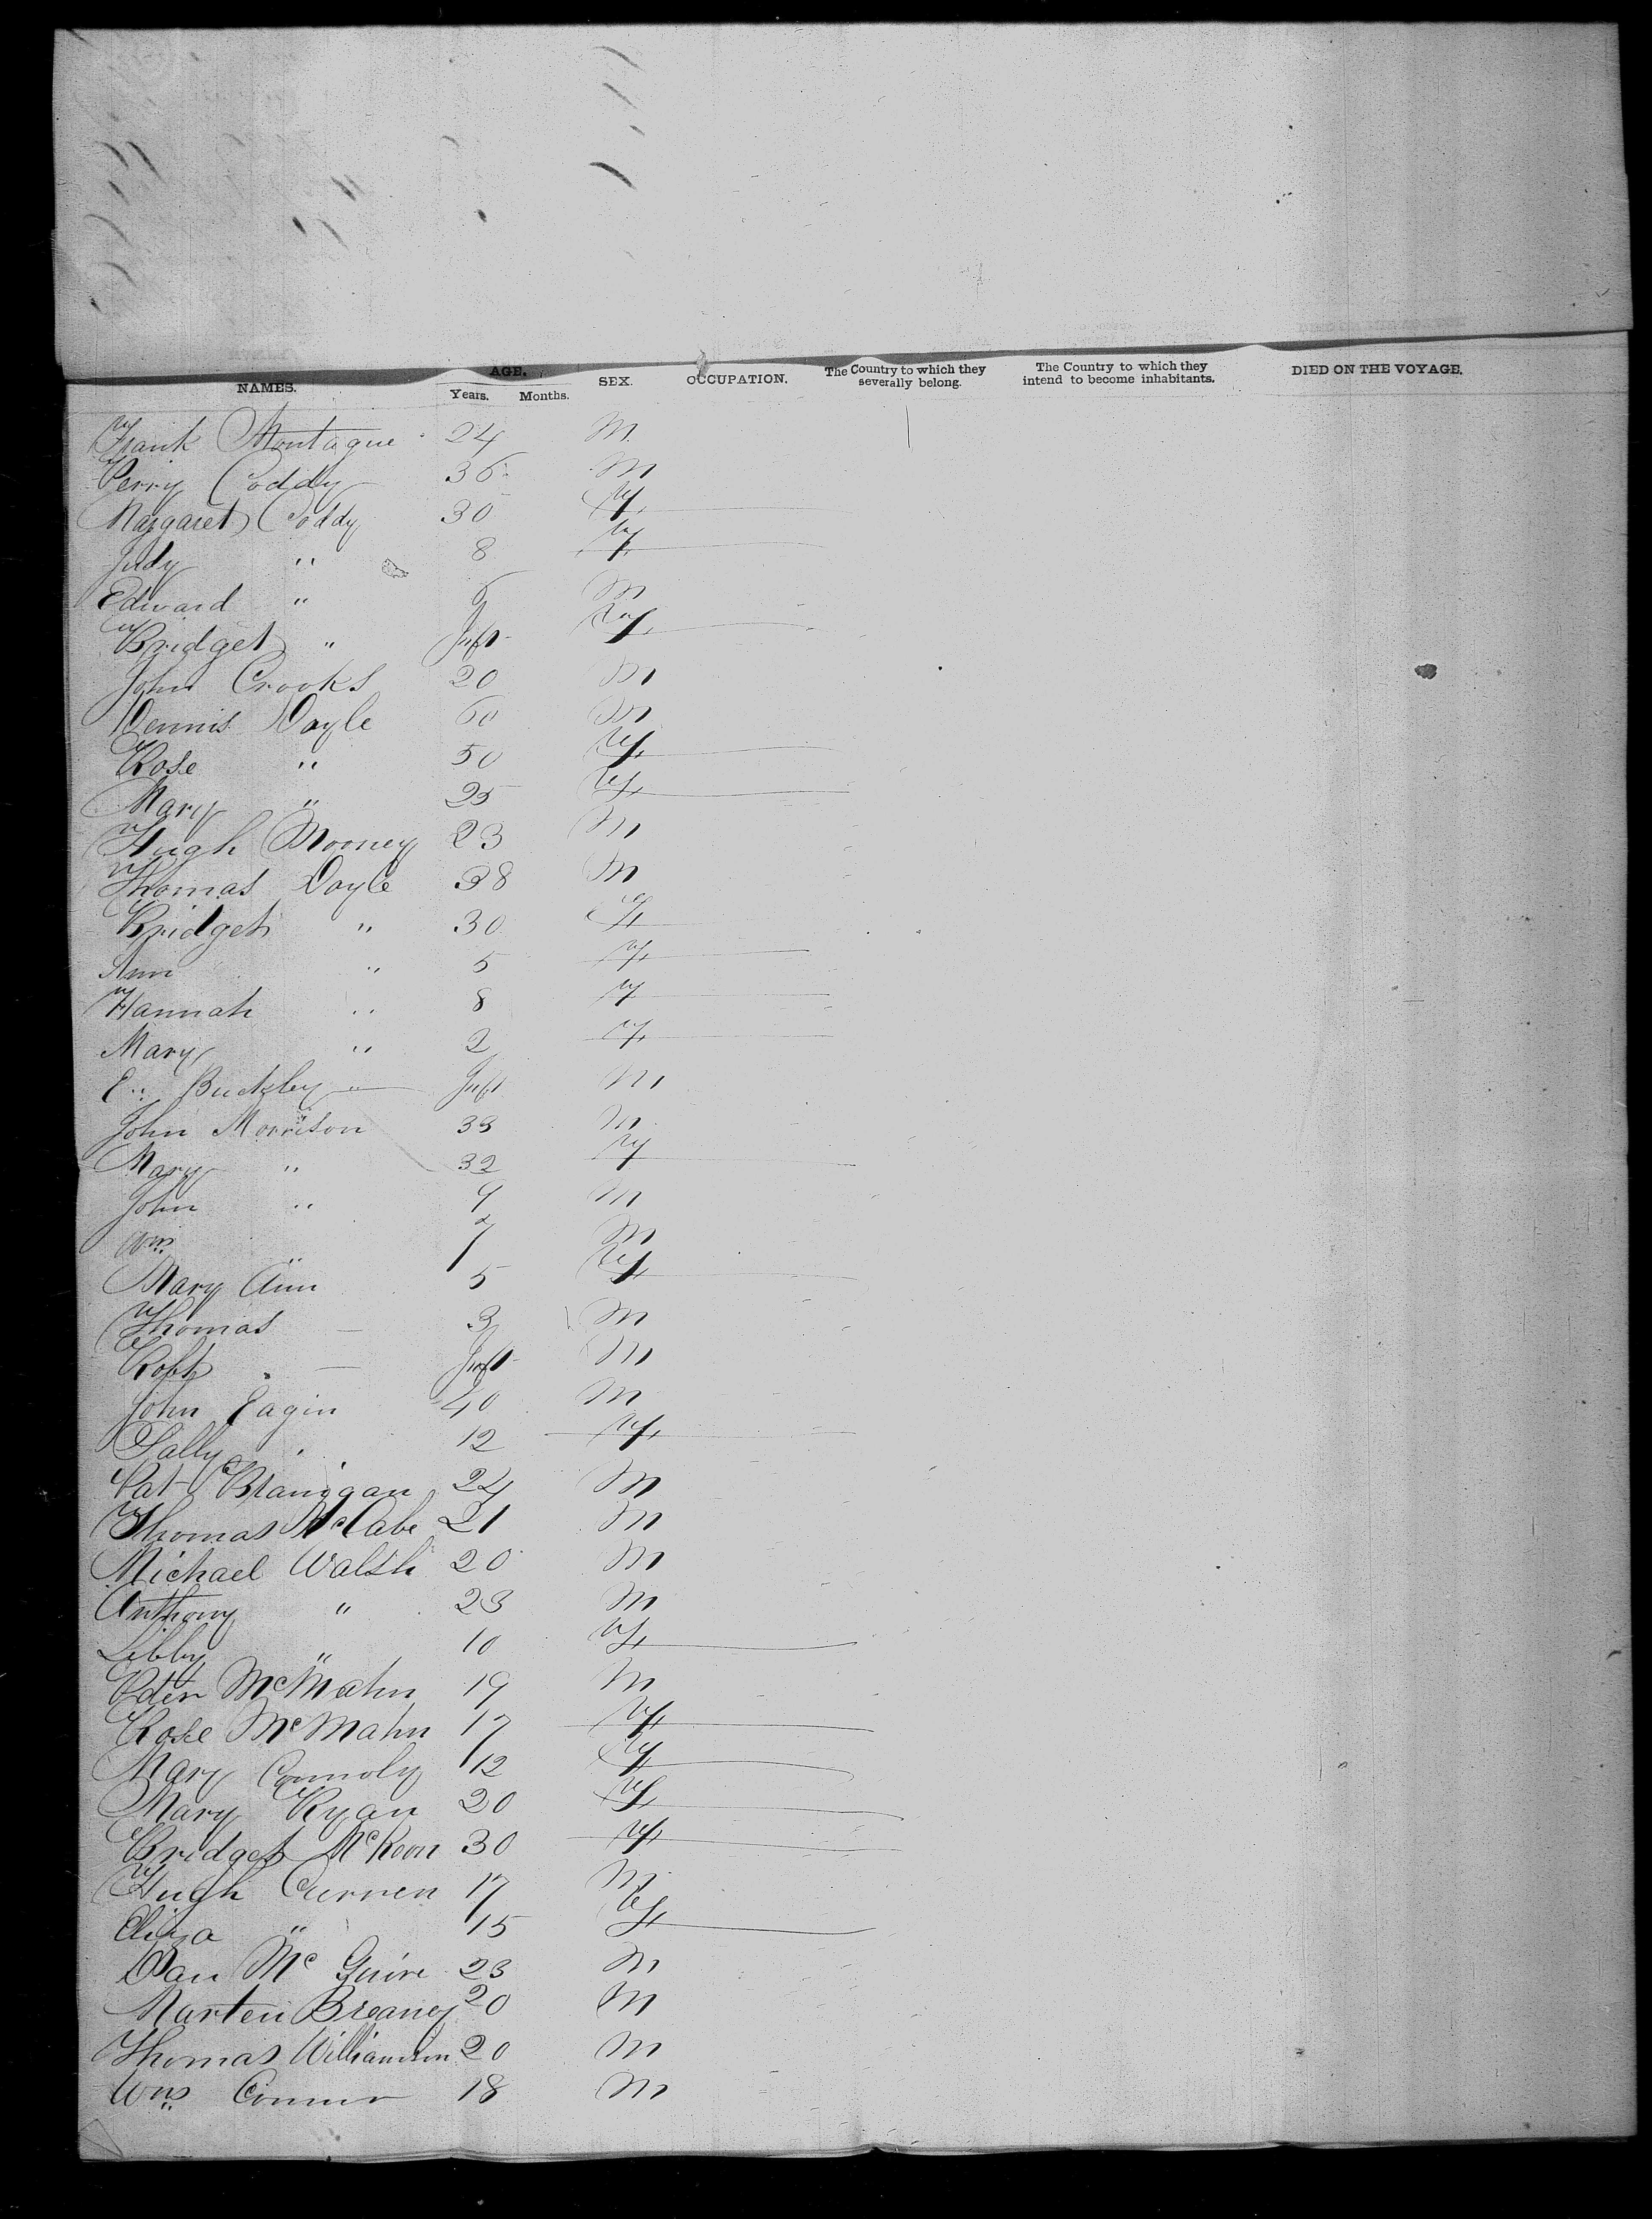 NAMES. AGE. Years. Months. SEX. OCCUPATION. The Country to which they severally belong. The Country to which they intend to become inhabitants. DIED ON THE VOYAGE.
Frank Montague 24 M
Perry Coddy 36 M
Margaret Coddy 30 F
Judy " 8 F
Edward " 6 M
Bridget " Inft F
John Crooks 20 M
Dennis Doyle 60 M
Rose " 50 F
Mary " 25 F
Hugh Mooney 23 M
Thomas Doyle 38 M
Bridget " 30 F
Ann " 5 F
Hannah " 8 F
Mary " 2 F
E. Buckley " Inft M
John Morrison 33 M
Mary " 32 F
John " 9 M
Wm " 7 M
Mary Ann 5 F
Thomas — 3 M
Robt " — Inft M
John Eagin 40 M
Sally " 12 F
Pat Branigan 24 M
Thomas McCabe 21 M
Michael Walsh 20 M
Anthony " 23 M
Libby " 10 F
Peter McMahn 19 M
Rose McMahn 17 F
Mary Connoly 12 F
Mary Ryan 20 F
Bridget McKeon 30 F
Hugh Curren 17 M
Eliza " 15 F
Dan Mc Guire 23 M
Marten Breaney 20 M
Thomas Williamson 20 M
Wm Connor 18 M